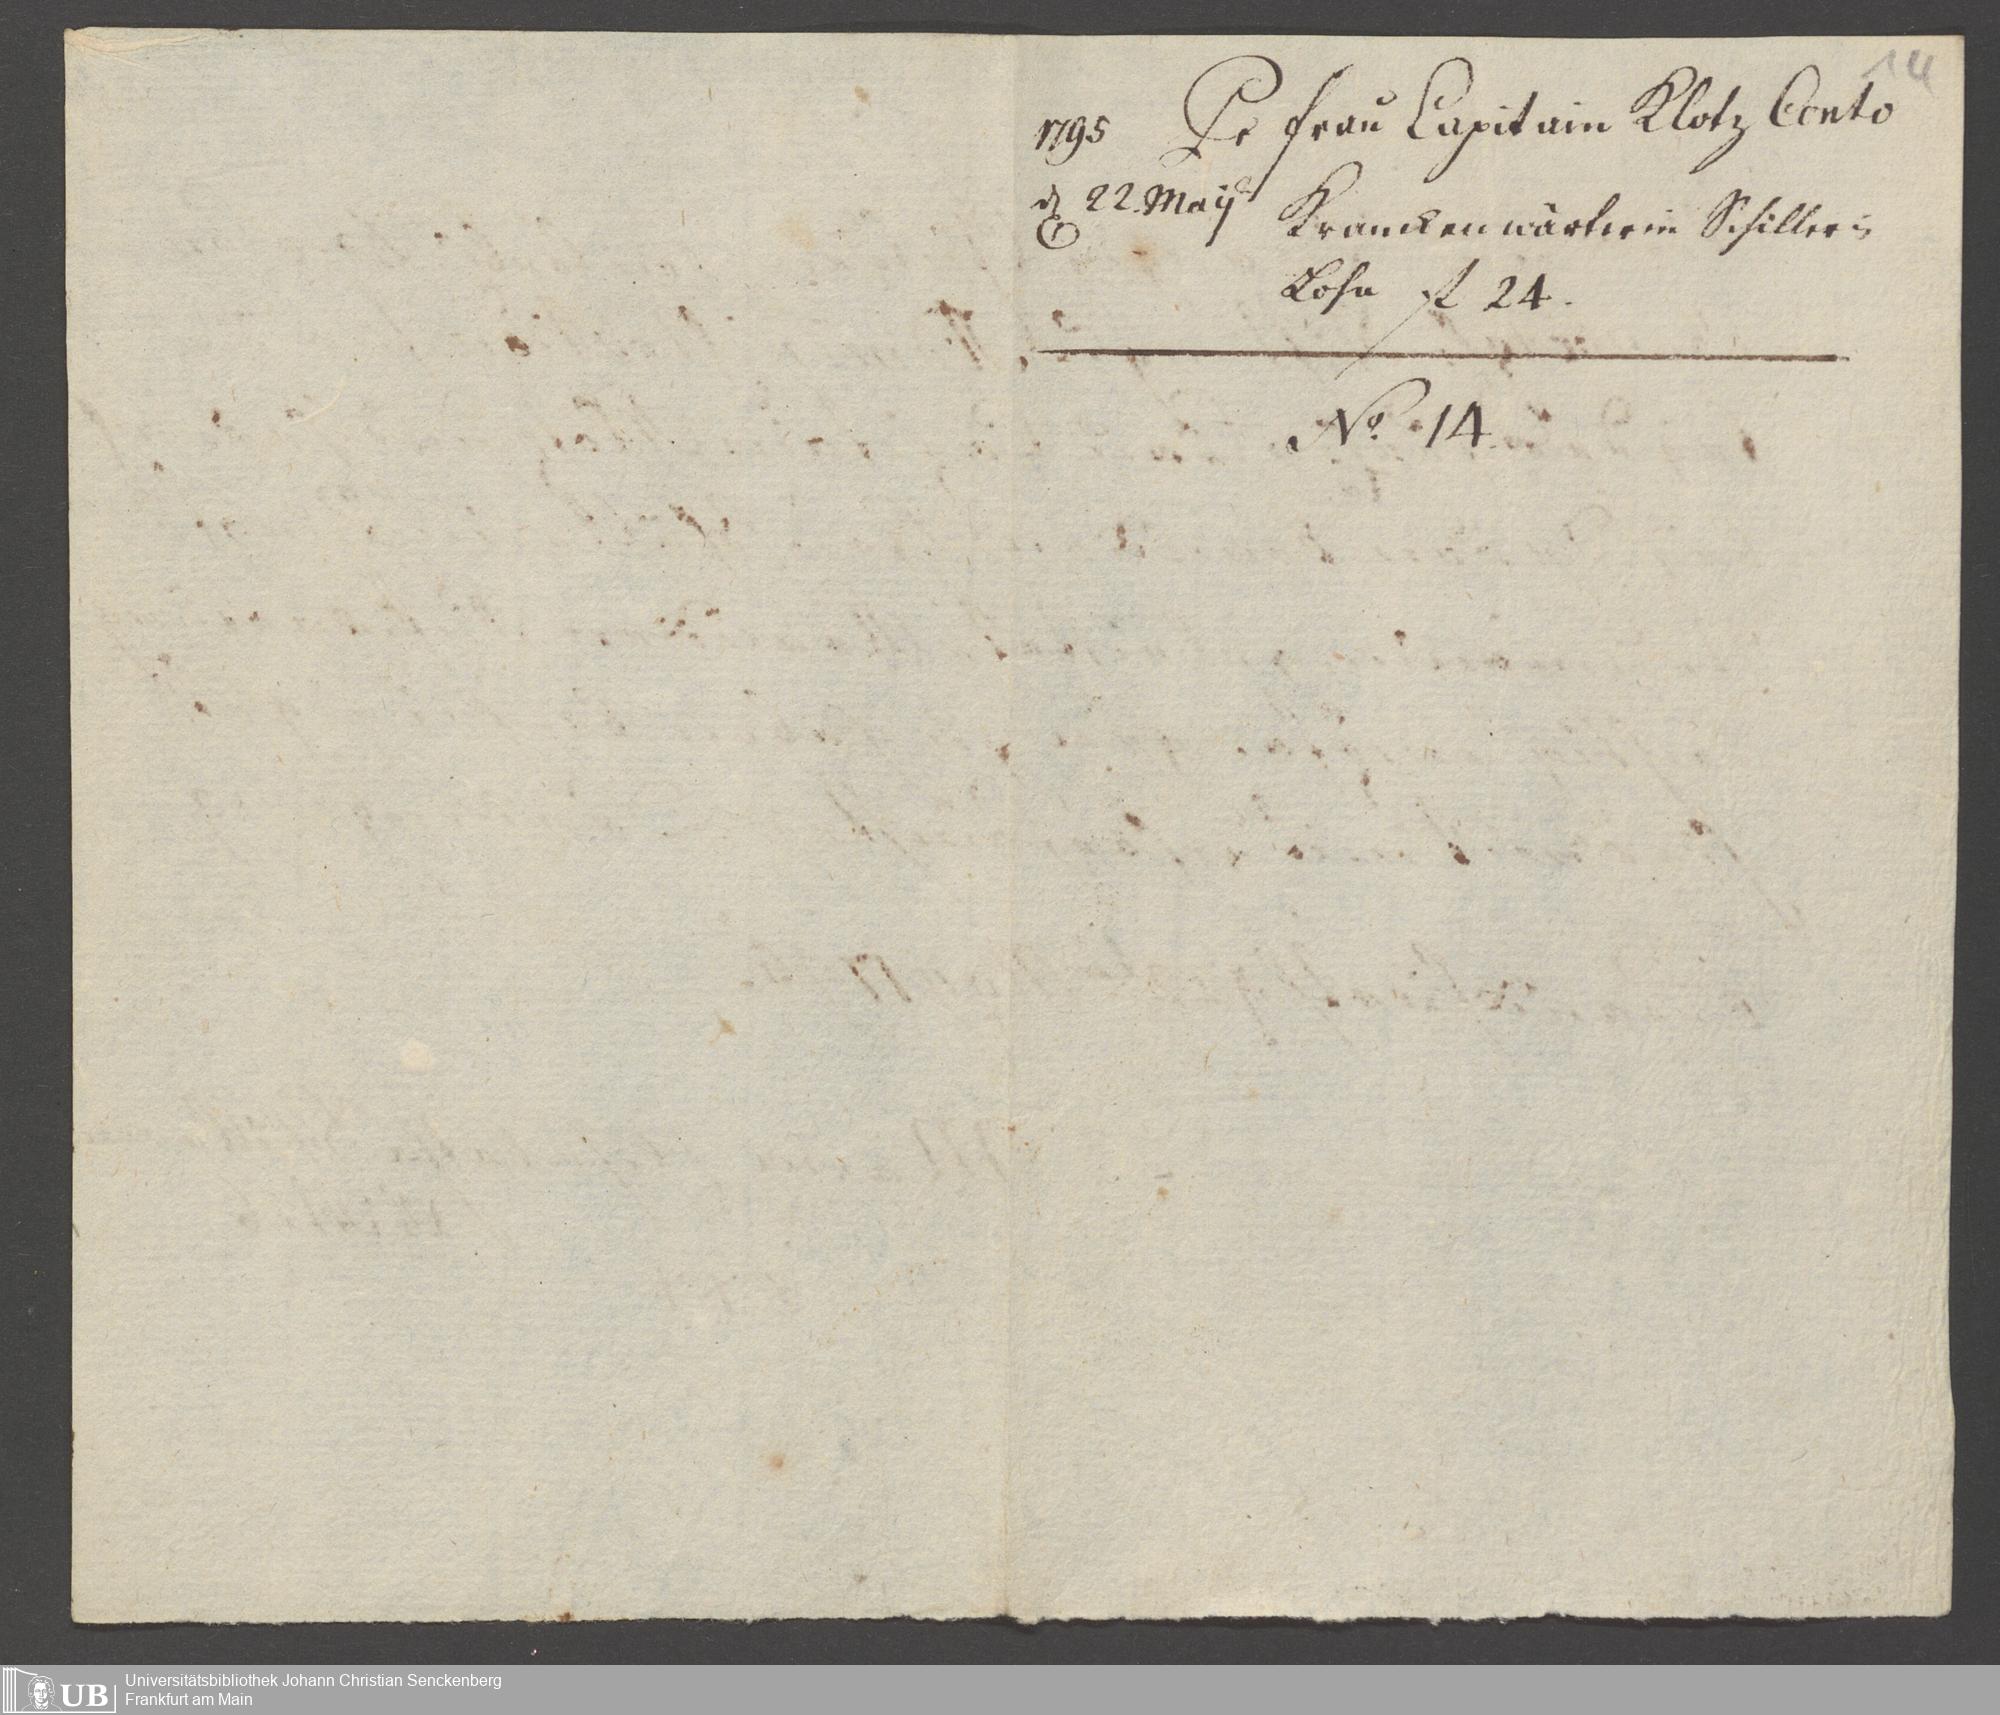 14
1795 Pr Frau Capitain Klotz Conto
d 22. Maÿ Kranckenwärterin Schillers
Lohn f 24.
No. 14.
UB Universitätsbibliothek Johann Christian Senckenberg
Frankfurt am Main